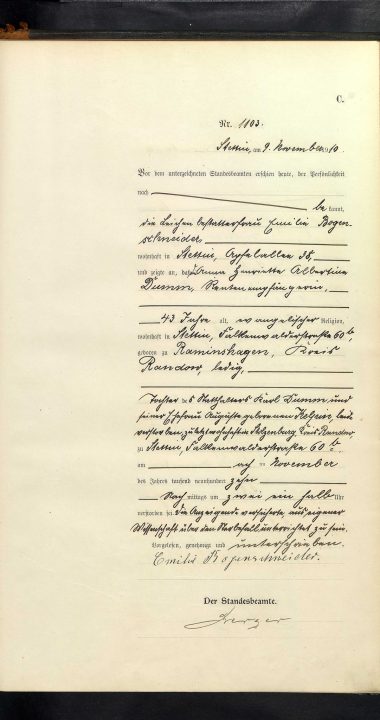 C.
Nr. 1103.
Stettin, am 9. November 1910.
Vor dem unterzeichneten Standesbeamten erschien heute, der Persönlichkeit
nach
be kannt,
die Leichenbestatterfrau Emilie Bogen-
schneider,
wohnhaft in Stettin, Apfelallee 38,
und zeigte an, daß Anna Henriette Albertine
Dumm, Rentenempfängerin,
43 Jahre alt, evangelischer Religion,
wohnhaft in Stettin, Falkenwalderstraße 60
geboren zu Raminshagen, Kreis
Randow, ledig,
Tochter des Statthalters Karl Dumm und
seiner Ehefrau Auguste geborenen beide
verstorben, zuletzt wohnhaft in Kreis Randow,
zu Stettin, Falkenwalderstraße 60
am acht en November
des Jahres tausend neunhundert zehn
Nach mittags um zwei ein halb Uhr
verstorben sei. Die Anzeigende versicherte aus eigener
Wissenschaft über den Sterbefall unterrichtet zu sein.
Vorgelesen, genehmigt und unterschrieben.
Emilie Bogenschneider.
Der Standesbeamte.